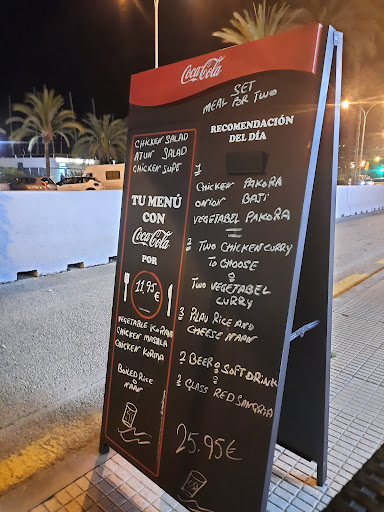 Coca-Cola
CHICKEN SALAD
ATUN SALAD
CHICKEN SUPE
TU MENÚ
CON
Coca-Cola
POR
11,95€
VEGETABLE KORMA
CHICKEN MASALA
CHICKEN KORMA
BOILED RICE
NAAN
SET
MEAL FOR TWO
RECOMENDACIÓN
DEL DÍA
1
CHICKEN PAKORA
ONION BAJI
VEGETABEL PAKORA
2 TWO CHICKEN CURRY
TO CHOOSE
O
TWO VEGETABEL
CURRY
3 PILAU RICE AND
CHEESE NAAN
2 BEER O SOFT DRINK
2 GLASS RED SANGRIA
25.95€